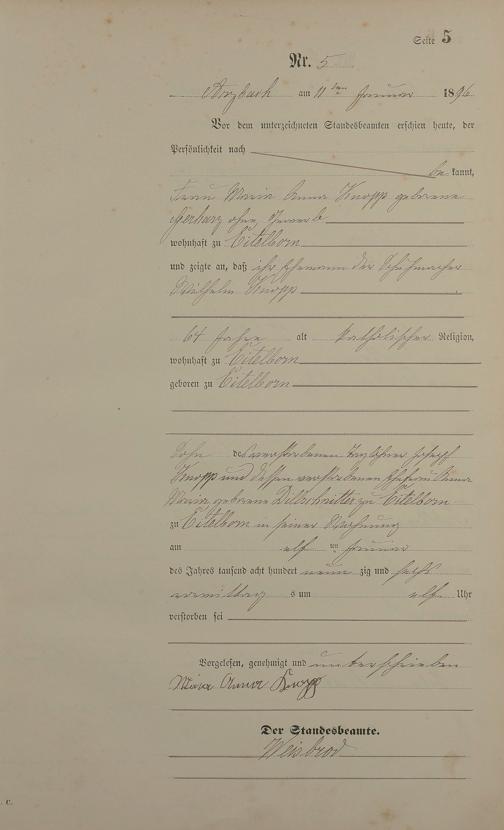 Seite 5
Nr. 5
Arzbach am 11ten Januar 1896
Vor dem unterzeichneten Standesbeamten erschien heute, der
Persönlichkeit nach
be kannt,
Frau Maria Anna Knopp geborene
Gerharz ohne Gewerb
wohnhaft zu Eitelborn
und zeigte an, daß ihr Ehemann der Schuhmacher
Wilhelm Knopp
64 Jahre alt katholischer Religion,
wohnhaft zu Eitelborn
geboren zu Eitelborn
Sohn des verstorbenen Taglöhner Joseph
Knopp und dessen verstorbenen Ehefrau Anna
Maria geborene Dillschnitter zu Eitelborn
zu Eitelborn in seiner Wohnung
am elf ten Januar
des Jahres tausend acht hundert neun zig und sechs
vormittag s um elf Uhr
verstorben sei
Vorgelesen, genehmigt und unterschrieben
Maria Anna Knopp
Der Standesbeamte.
Weisbrod